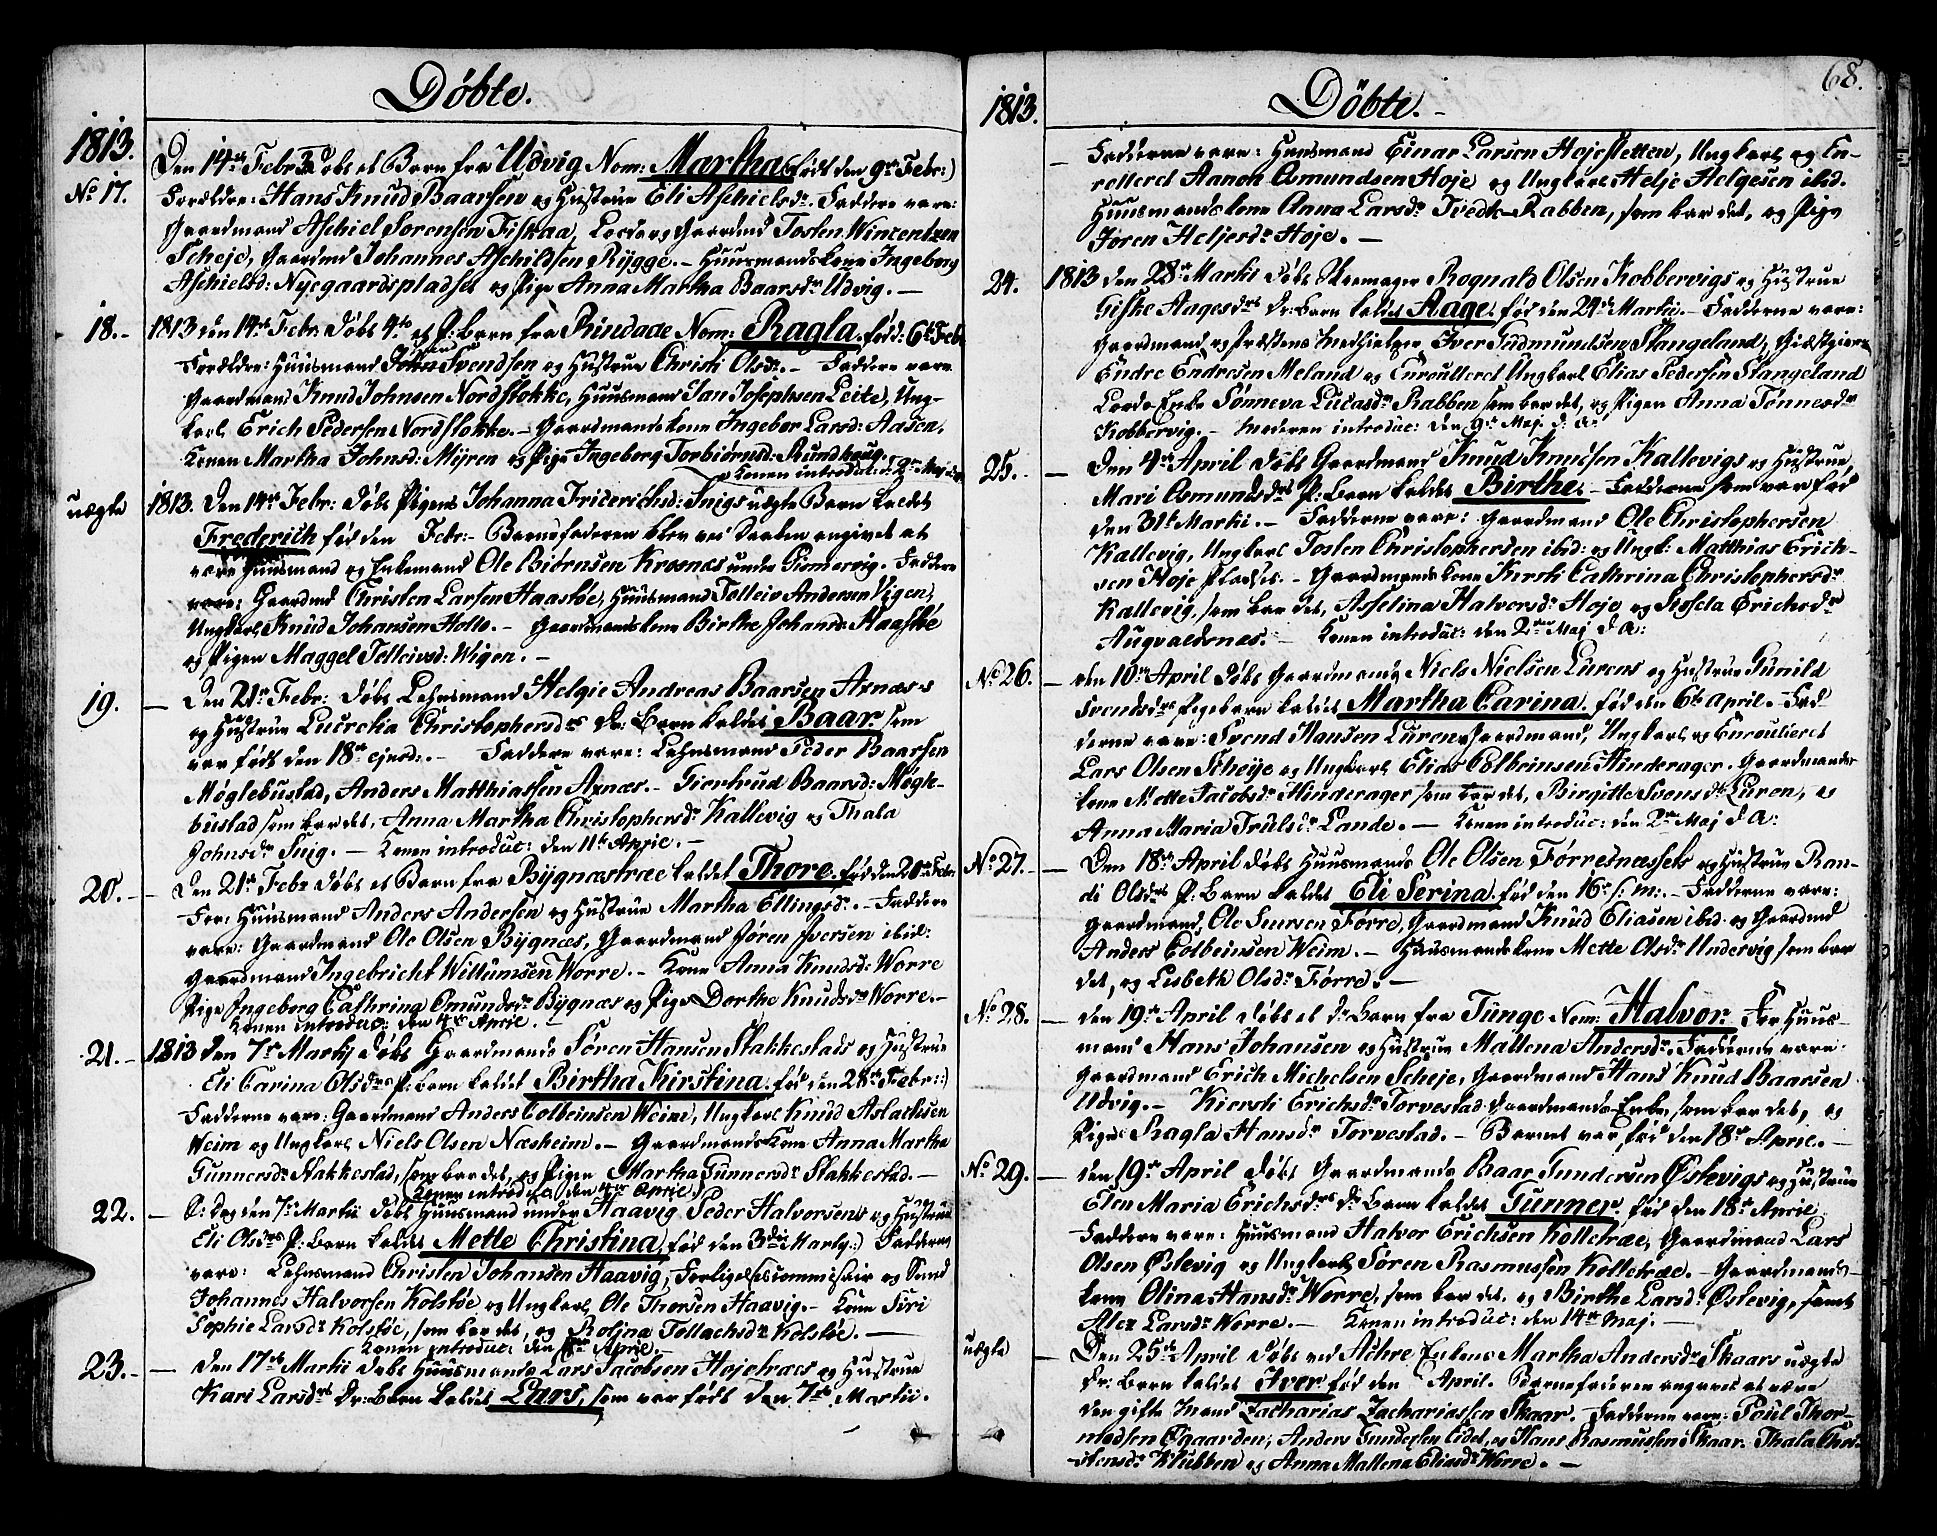 Døbte.
1813.
No 17.
Den 14de Febr. Døbt et Barn fra Udvig Nom: Martha (født den 9de Febr:)
Forældre: Hans Knud Baarsen og Hustrue Eli Aschielsdr. Faddere vare:
Gaardmand Aschiel Sorensen Fiskaa, Gaardmd Tosten Wincentzen
Scheje, Gaardmd Johannes Aschildsen Rygge. - Huusmandskone Ingeborg
Aschielsd: Nyegaardspladset og Pige Anna Martha Baarsdr Udvig. -
18. -
1813 den 14de Febr. Døbt et P: Barn fra Rindade Nom: Ragla, fød: 6te Febr.
Forældre: Huusmand Svendsen og Hustrue Christi Olsdr. - Faddere vare
Gaardmand Knud Johnsen Nordstokke, Huusmand Jan Josephsen Leite, Ung-
karl Erich Pedersen Nordstokke. - Gaardmandskone Ingebor Larsd: Aasen,
Konen Martha Johnsd: Myren og Pige Ingeborg Torbiørnsd: Rundhaug.
Konen introduc: 2den Maj
uægte
1813. Den 14de Febr: Døbt Pigens Johanna Friderichsd: Snigs uægte Barn kaldet
Frederich fød den Febr: - Barnefaderen blev ved Daaben angivet at
være Huusmand og Enkemand Ole Biørnsen Kroesnæs under Giomervig. Faddere
vare: Gaardmd Christen Larsen Haastøe, Huusmand Tolleiv Andersen Vigen,
Ungkarl Knud Johansen Holte. - Gaardmandskone Birthe Johansd: Haastøe
og Pigen Maggel Tolleivsd: Wigen. -
19. -
Den 21de Febr: Døbt Lehnsmand Helgie Andreas Baarsen Axnæs's
og Hustrue Lucretia Christophersdrs Dr: Barn kaldet Baar som
var født den 18de ejusd:. - Faddere vare: Lehnsmand Peder Baarsen
Møglebustad, Anders Matthiassen Axnæs. - Giertrud Baarsd: Møgle-
bustad som bar det, Anna Martha Christophersdr Kallevig og Thala
Johnsdr Snig. - Konen introduc: den 11te April. -
20. -
Den 21de Febr Døbt et Barn fra Bygnæstræe kaldet Thore. fød den 20de Febr
For: Huusmand Anders Andersen og Hustrue Martha Ellingsdr. - Faddere
vare: Gaardmand Ole Olsen Bygnæs, Gaardmand Jøren Iversen ibid:
Gaardmand Ingebricht Willumsen Worre. - Kone Anna Knudsd: Worre
Pige Ingeborg Cathrina Omundsdr Bygnæs og Pige Dorthe Knudsdr Worre. -
Konen introduc: den 4de April. -
21. -
1813 den 7de Martij Døbt Gaardmands Søren Hansen Stakkestads og Hustrue
Eli Carina Olsdrs P: Barn kaldet Birtha Kirstina. fød den 28de Febr:)
Fadderne vare: Gaardmand Anders Colbeinsen Weim, Ungkarl Knud Aslachsen
Weim og Ungkarl Niels Olsen Næsheim. - Gaardmandskone Anna Martha
Gunnersdr Stakkestad, som bar det, og Pigen Martha Gunnersdr Stakkestad. -
(Konen introduc. den 4de April.)
22. -
S: Dag den 7de Martii Døbt Huusmand under Haavig Peder Halvorsens og Hustrue
Eli Olsdrs P: Barn kaldet Mette Christina, fød den 3die Marty.) Faddere
vare: Lehnsmand Christen Johansen Haavig, Forligelsescommissair og Smd
Johannes Halvorsen Kolstøe og Ungkarl Ole Thorsen Haavig. - Kone Siri
Sophie Larsdr Kolstøe, som bar det, og Rolina Tollachsdr Kolstøe. -
Konen introduc: den April. -
23. -
Den 17de Martii Døbt Huusmands Lars Jacobsen Hojetræes og Hustrue
Kari Larsdrs Dr: Barn kaldet Lars, som var født den 7de Martii.
68.
1813.
Døbte. -
Fadderne vare: Huusmand Einar Larsen Hojesletten, Ungkarl og En-
rolleret Aanon Osmundsen Hoje og Ungkarl Helje Helgesen ibid.
Huusmandskone Anna Larsdr Tvedt-Rabben, som bar det, og Pige
Joren Heljesdr Hoje. -
24.
1813 den 28de Martii Døbt Skomager Rognald Olsen Kobbervigs og Hustrue
Giske Aagesdrs Dr: Barn kaldet Aage. fød den 24de Martii. - Fadderne vare:
Gaardmand og Præstens Medhjelper Iver Gudmundsen Stangeland, Giæstgiver
Endre Endresen Meland og Enroulleret Ungkarl Elias Pedersen Stangeland
Enke Sønneva Lucasdr Rabben som bar det, og Pigen Anna Tønnesdr
Kobbervig. - Moderen introduc: den 9de Maj d. a:
25. -
Den 4de April Døbt Gaardmand Knud Knudsen Kallevigs og Hustrue
Mari Osmundsdrs P: Barn kaldet Birthe. - som var fød
den 31te Martii. - Fadderne vare: Gaardmand Ole Christophersen
Kallevig, Ungkarl Tosten Christophersen ibid: og Ungk: Matthias Erich-
sen Hoje Pladset. - Gaardmandskone Kirsti Cathrina Christophersdr
Kallevig, som bar det, Asselina Halvorsdr Hoje og Erichsdr
Augvaldsnæs. - Konen introduc: den 2den Maj d. a:
No 26. -
den 10de April Døbt Gaardmands Niels Nielsen Lurens og Hustrue Gunild
Svendsdrs Pigebarn kaldet Martha Carina. fød den 6te April. - Fad-
derne vare: Svend Hansen Luren Gaardmand, Ungkarl og Enroulleret
Lars Olsen Scheije og Ungkarl Elias Colbeinsen Hinderager. Gaardmands-
kone Mette Jacobsdr Hinderager som bar det, Birgitte Svensdr Luren, og
Anna Maria Trulsdr Lande. - Konen introduc: den 2den Maj d. a:
No 27. -
Den 18de April Døbt Huusmands Ole Olsen Førresnæssets og Hustrue Ran-
di Olsdrs P: Barn kaldet Eli Serina. fød den 16de s. m:. - Fadderne vare:
Gaardmand Ole Førre, Gaardmand Knud Eliasen ibid. og Gaardmd
Anders Colbeinsen Weim. - Huusmandskone Mette Olsdr Undervig som bar
det, og Lisbeth Olsdr Førre. -
No 28. -
den 19de April Døbt et Dr Barn fra Tungo Nom: Halvor. For Huus-
mand Hans Johansen og Hustrue Mallena Andersdr. Fadderne vare:
Gaardmand Erich Michelsen Scheje, Gaardmand Hans Knud Baarsen
Udvig. - Kiersti Erichsdr Torvestad Gaardmands Enke, som bar det, og
Pige Ragla Hansdr Torvestad. - Barnet var fød den 18de April. -
No 29. -
den 19de April Døbt Gaardmands Baar Gundersen Østevigs og Hustrue
Elen Maria Erichsdrs Dr Barn kaldet Gunner, fød den 18de April.
Faddere vare: Huusmand Halvor Erichsen Kolletræe, Gaardmand Lars
Olsen Østevig og Ungkarl Søren Rasmussen Kolletræe. - Gaardmands-
kone Olina Hansdr Worre, som bar det, og Birthe Larsd: Østevig, samt
Larsdr Worre. - Konen introduc: den 14de Maj. -
uægte
Den 25de April Døbt ved Achre Enkens Martha Andersdr Skaars uægte
Dr: Barn kaldet Iver fød den April. Barnefaderen angaves at være
den gifte Mand Zacharias Zachariassen Skaar. Fadderne vare: Poul Thor-
modsen Øgaarden, Anders Gundersen Eidet, og Hans Rasmussen Skaar. Thala
Klubben og Anna Mallena Eliasdr Worre. -